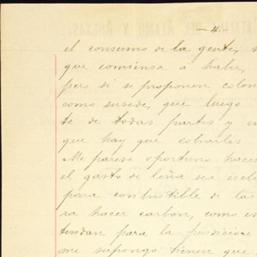 -4-
el consumo de la gente,
que comiensa a haber,
pero si se proponen colon
como susede, que luego
te de todas partes y
que hay que cobrarles
Me parese oportuno haces
el gasto de leña sea
para combustible de las
ra hacer carbon, como es
tendan para la
me supongo tienen que